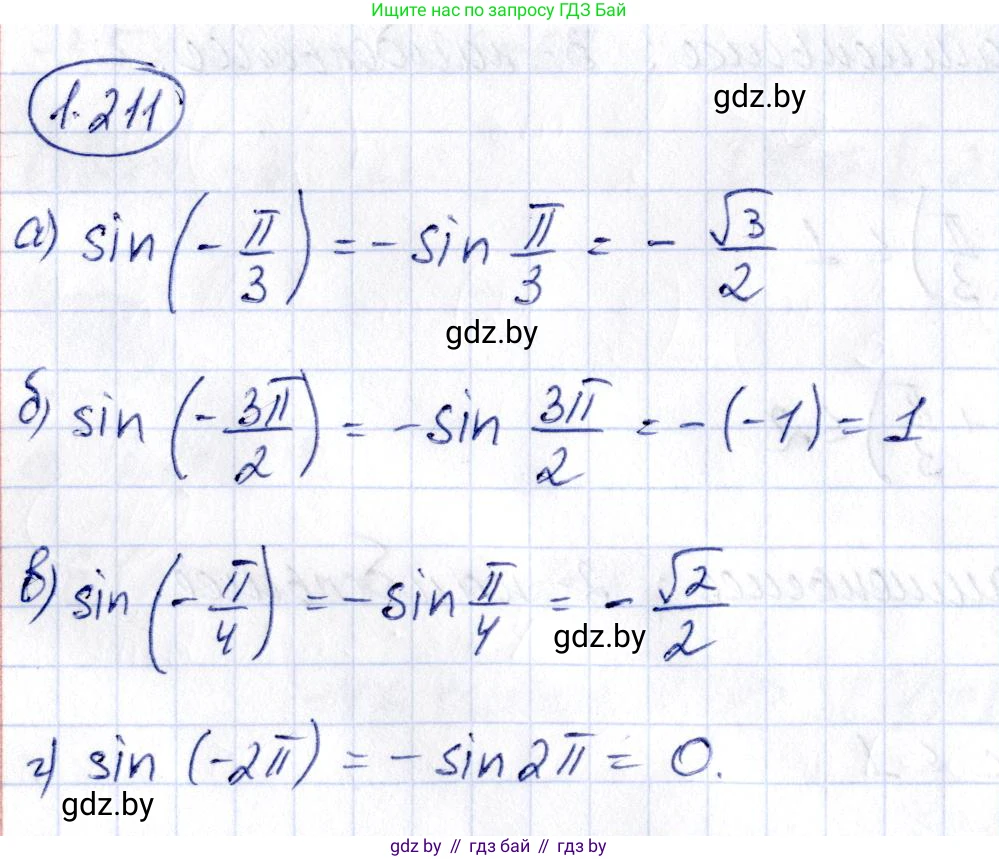 Ищите нас по запросу ГДЗ Бай
1.211
gdz.by
а) sin(-π/3) = -sin π/3 = - √3/2
gdz.by
б) sin(-3π/2) = -sin 3π/2 = -(-1) = 1
в) sin(-π/4) = -sin π/4 = - √2/2
gdz.by
г) sin(-2π) = -sin2π = 0.
gdz.by
gdz.by // гдз бай // gdz by